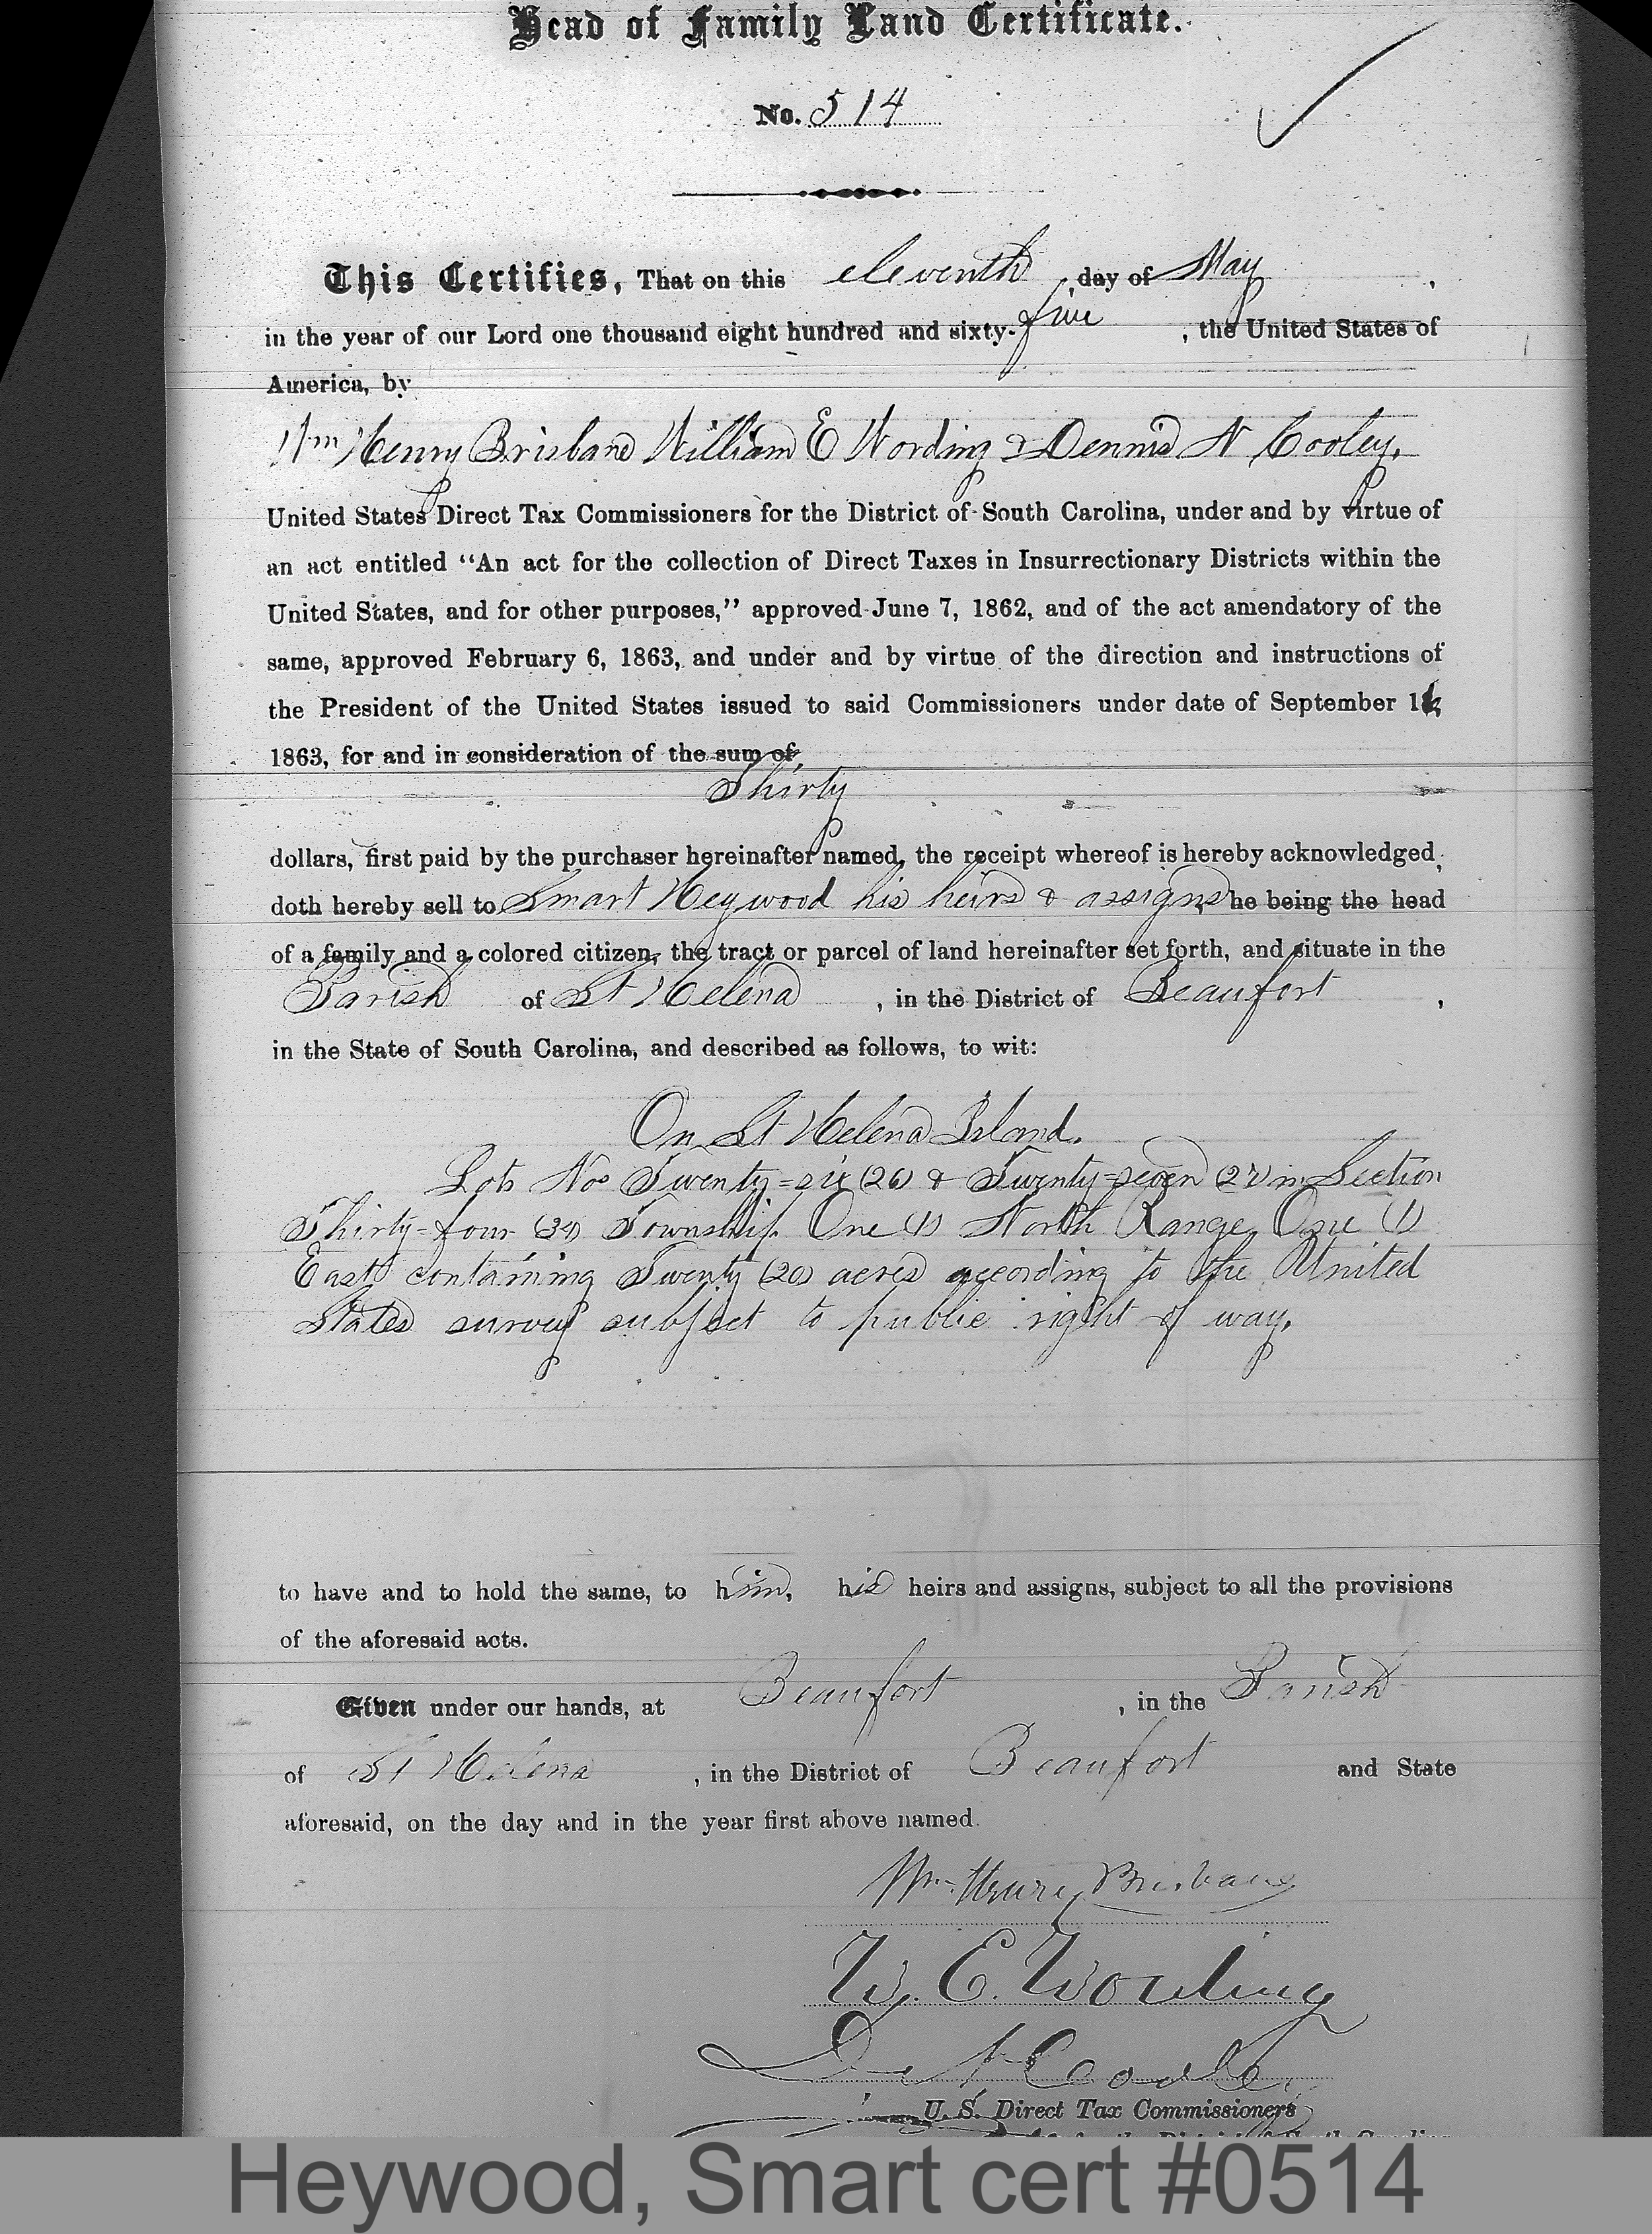 Head of Family Land Certificate.
No. 514
This Certifies, That on this eleventh day of May,
in the year of our Lord one thousand eight hundred and sixty-five, the United States of
America, by
Wm Henry Brisbane William E Wording & Dennis N Cooley,
United States Direct Tax Commissioners for the District of South Carolina, under and by virtue of
an act entitled “An act for the collection of Direct Taxes in Insurrectionary Districts within the
United States, and for other purposes,” approved June 7, 1862, and of the act amendatory of the
same, approved February 6, 1863, and under and by virtue of the direction and instructions of
the President of the United States issued to said Commissioners under date of September
1863, for and in consideration of the sum of
Thirty
dollars, first paid by the purchaser hereinafter named, the receipt whereof is hereby acknowledged,
doth hereby sell to Smart Heywood his heirs & assigns he being the head
of a family and a colored citizen, the tract or parcel of land hereinafter set forth, and situate in the
Parish of St Helena, in the District of Beaufort,
in the State of South Carolina, and described as follows, to wit:
On St Helena Island.
Lots Nos Twenty=six (26) & Twenty=seven (27) in Section
Thirty=four (34) Township One (1) North Range One (1)
East containing Twenty (20) acres according to the United
States survey subject to public right of way.
to have and to hold the same, to him, his heirs and assigns, subject to all the provisions
of the aforesaid acts.
Given under our hands, at Beaufort, in the Parish
of St Helena, in the District of Beaufort and State
aforesaid, on the day and in the year first above named.
Wm Henry Brisbane
W. E. Wording
D. N. Cooley
U. S. Direct Tax Commissioners
Heywood, Smart cert #0514